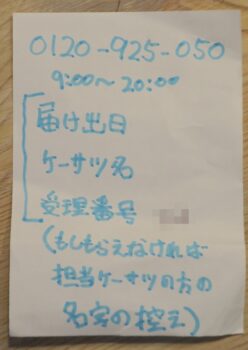 0120-925-050
9:00〜20:00
届け出日
ケーサツ名
受理番号
(もしもらえなければ
担当ケーサツの方の
名字の控え)